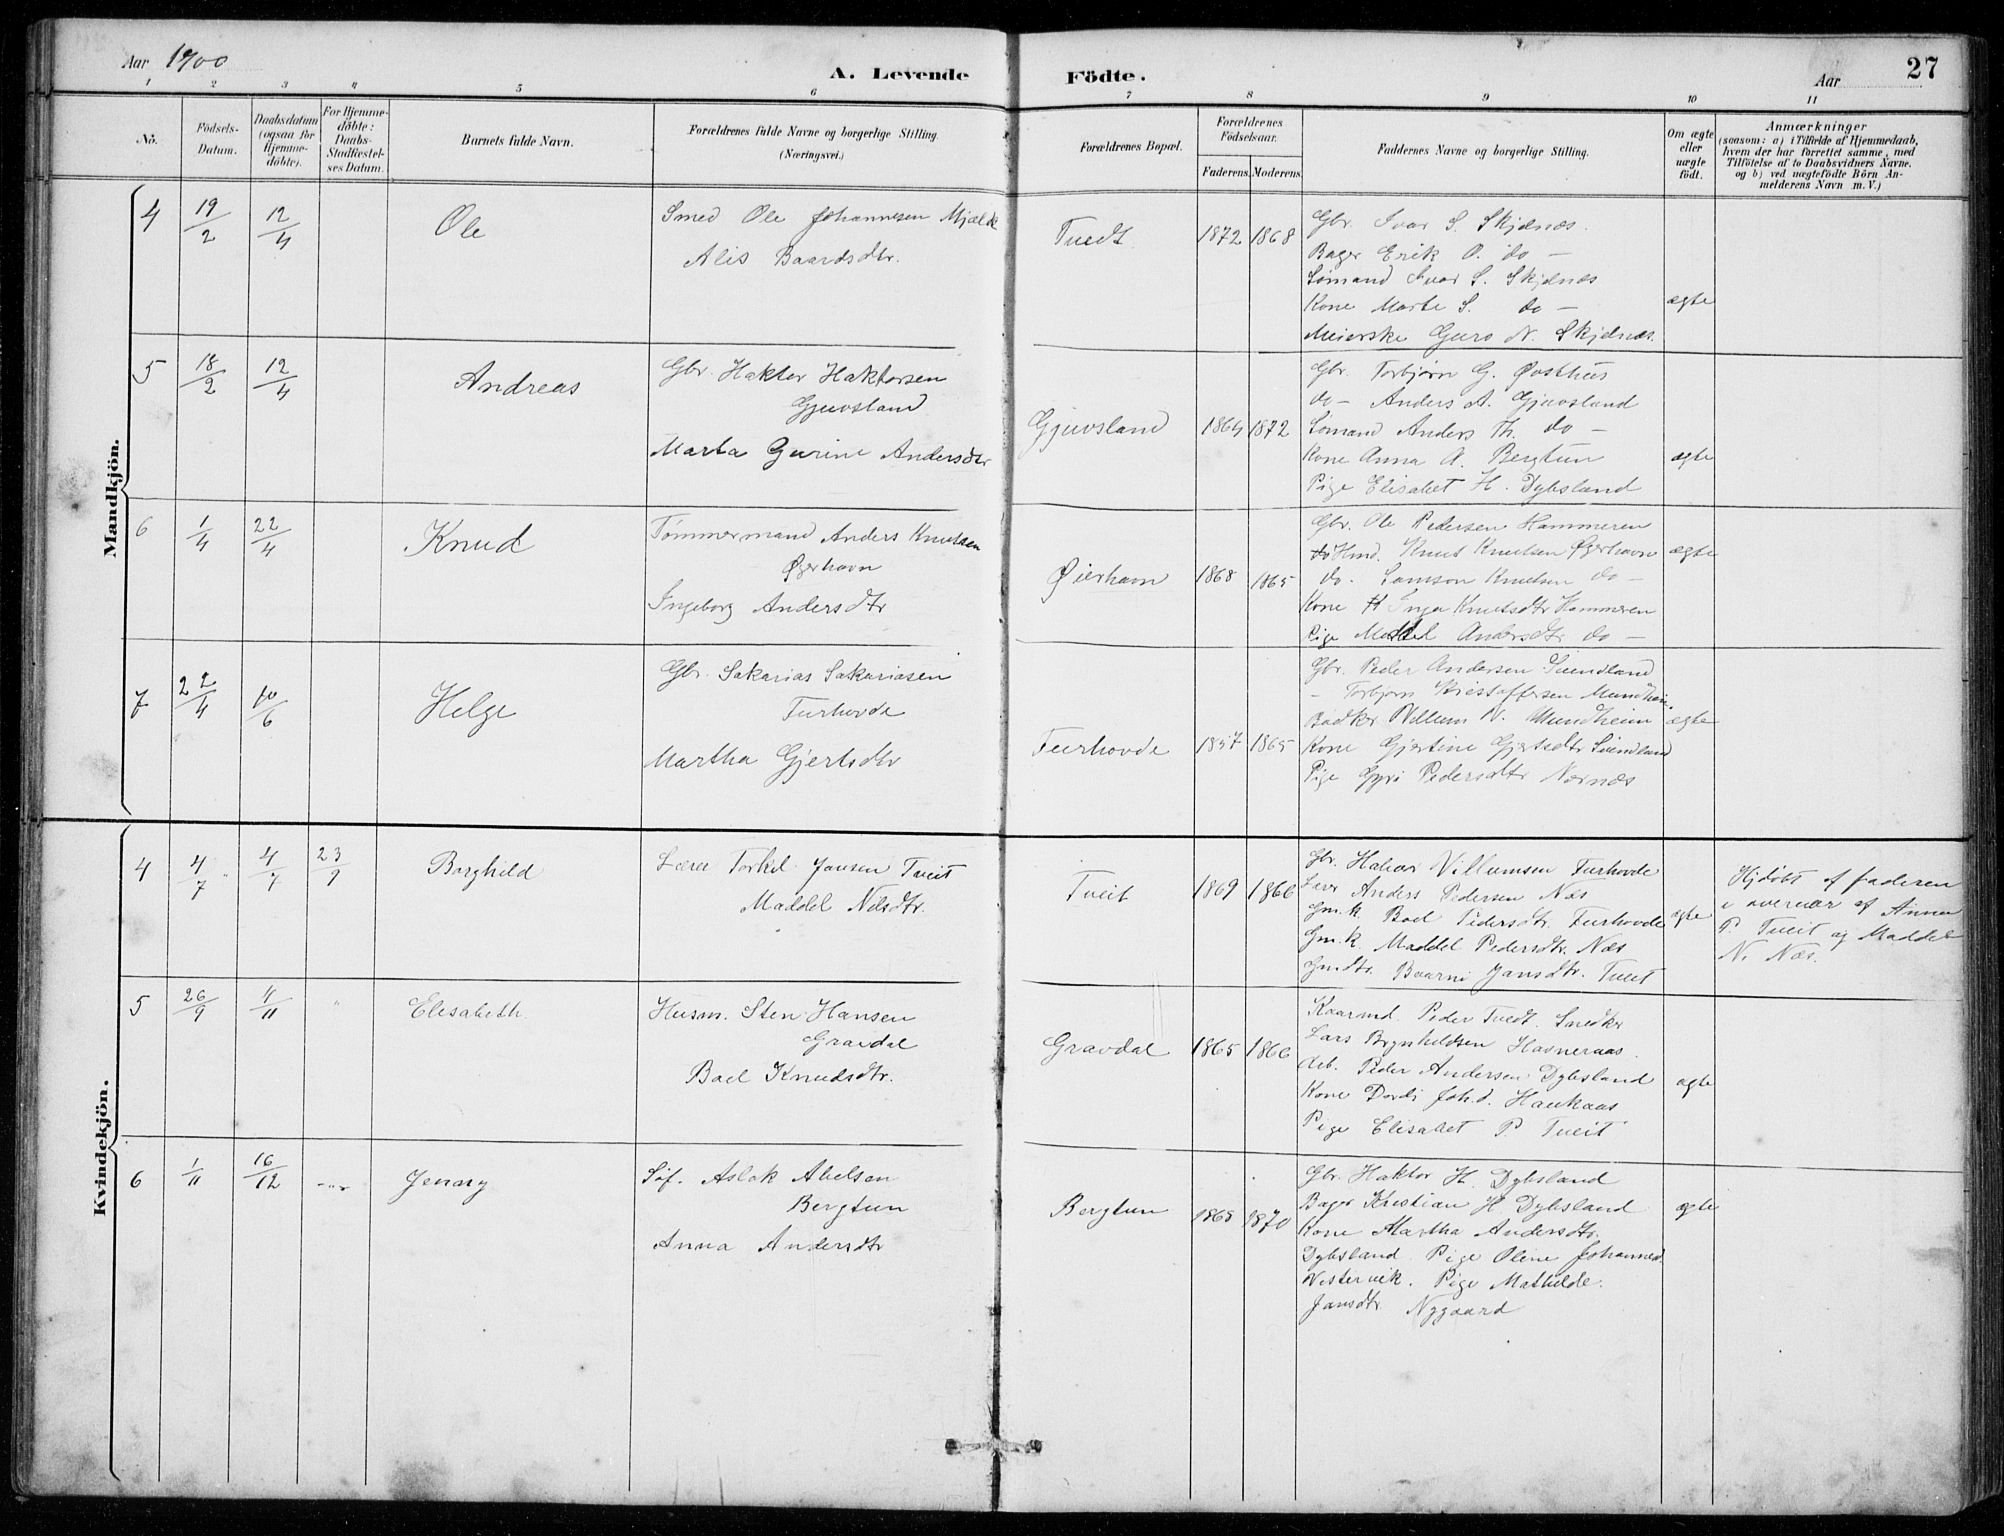 Aar 1900
A. Levende Födte.
Aar
27
1 2 3 4 5 6 7 8 9 10 11
No.
Födsels-Datum.
Daabsdatum (ogsaa för Hjemme-döbte).
For Hjemme-döbte: Daabs-Stadfæstel-ses Datum.
Barnets fulde Navn.
Forældrenes fulde Navne og borgerlige Stilling.
(Næringsvei.)
Forældrenes Bopæl.
Forældrenes Födselsaar.
Faderens. Moderens.
Faddernes Navne og borgerlige Stilling.
Om ægte eller uægte födt.
Anmærkninger
(saasom: a) i Tilfælde af Hjemmedaab,
hvem der har forrettet samme, med
Tilföielse af to Daabsvidners Navne.
og b) ved uægtefödte Börn An-
melderens Navn m. V.)
Mandkjön.
4 19/2 12/4 Ole
Smed Ole Johannesen Mjelde
Alis Baardsdtr.
Tvedt 1872 1868
Gbr. Ivar S. Skjelnæs.
Bager Erik O. do —
Sømand Ivar S. Skjelnæs
Kone Marte S. do —
Meierske Guro N. Skjelnæs.
ægte
5 18/2 12/4 Andreas
Gbr. Haktor Haktorsen
Gjuvsland
Marta Gurine Andersdtr
Gjuvsland 1864 1872
Gbr. Torbjørn G. Østhus
do — Anders A. Gjuvsland
Sømand Anders Th. do —
Kone Anna A. Bergtun
Pige Elisabet H. Dybsland
ægte
6 1/4 22/4 Knud
Tømmermand Anders Knutsen
Øyerhavn
Ingeborg Andersdtr
Øierhavn 1868 1865
Gbr. Ole Pedersen Hammeren
Hmd. Knut Knutsen Øyerhavn
do. Samson Knutsen do —
Kone Inga Knutsdtr Hammeren
Pige Maddel Andersdtr. do —
ægte
7 22/4 10/6 Helge
Gbr. Sakarias Sakariasen
Furhovde
Martha Gjertsdtr
Furhovde 1857 1865
Gbr. Peder Andersen Suendland
— Torbjørn Kristoffersen Mundheim.
Bødker Villum N. Mundheim
Kone Gjertine Gjertsdtr Suendland
Pige Gyri Pedersdtr Nernæs
ægte
Kvindekjön.
4 4/7 4/7 23/9 Borghild
Lærer Torkel Jansen Tveit
Maddel Nilsdtr.
Tveit 1869 1866
Gbr. Halvor Villumsen Furhovde
Lærer Anders Pedersen Næs
Gm.k. Boel Pedersdtr. Furhovde
Gm.k. Maddel Pedersdtr. Næs
Gmdtr. Baarni Jansdtr. Tveit
ægte
Hjdøbt af faderen
i overvær af Anna
P. Tveit og Maddel
N. Næs.
5 26/9 4/11 " Elisabeth.
Husm. Sten Hansen
Gravdal
Boel Knudsdtr.
Gravdal 1865 1866
Kaarmd. Peder Tvedt. Snedker
Lars Brynhildsen Havneraas.
Arb. Peder Andersen Dybsland
Kone Dordi Joh.d. Haukaas
Pige Elisabet P. Tveit
ægte
6 1/11 16/12 —"— Jenny
Søf. Aslak Abelsen
Bergtun
Anna Andersdtr
Bergtun 1868 1870
Gbr. Haktor H. Dybsland
Bager Kristian H. Dybsland
Kone Martha Andersdtr.
Dybsland. Pige Oline Johannesd.
Vestervik. Pige Mathilde
Jansdtr. Nygaard
ægte